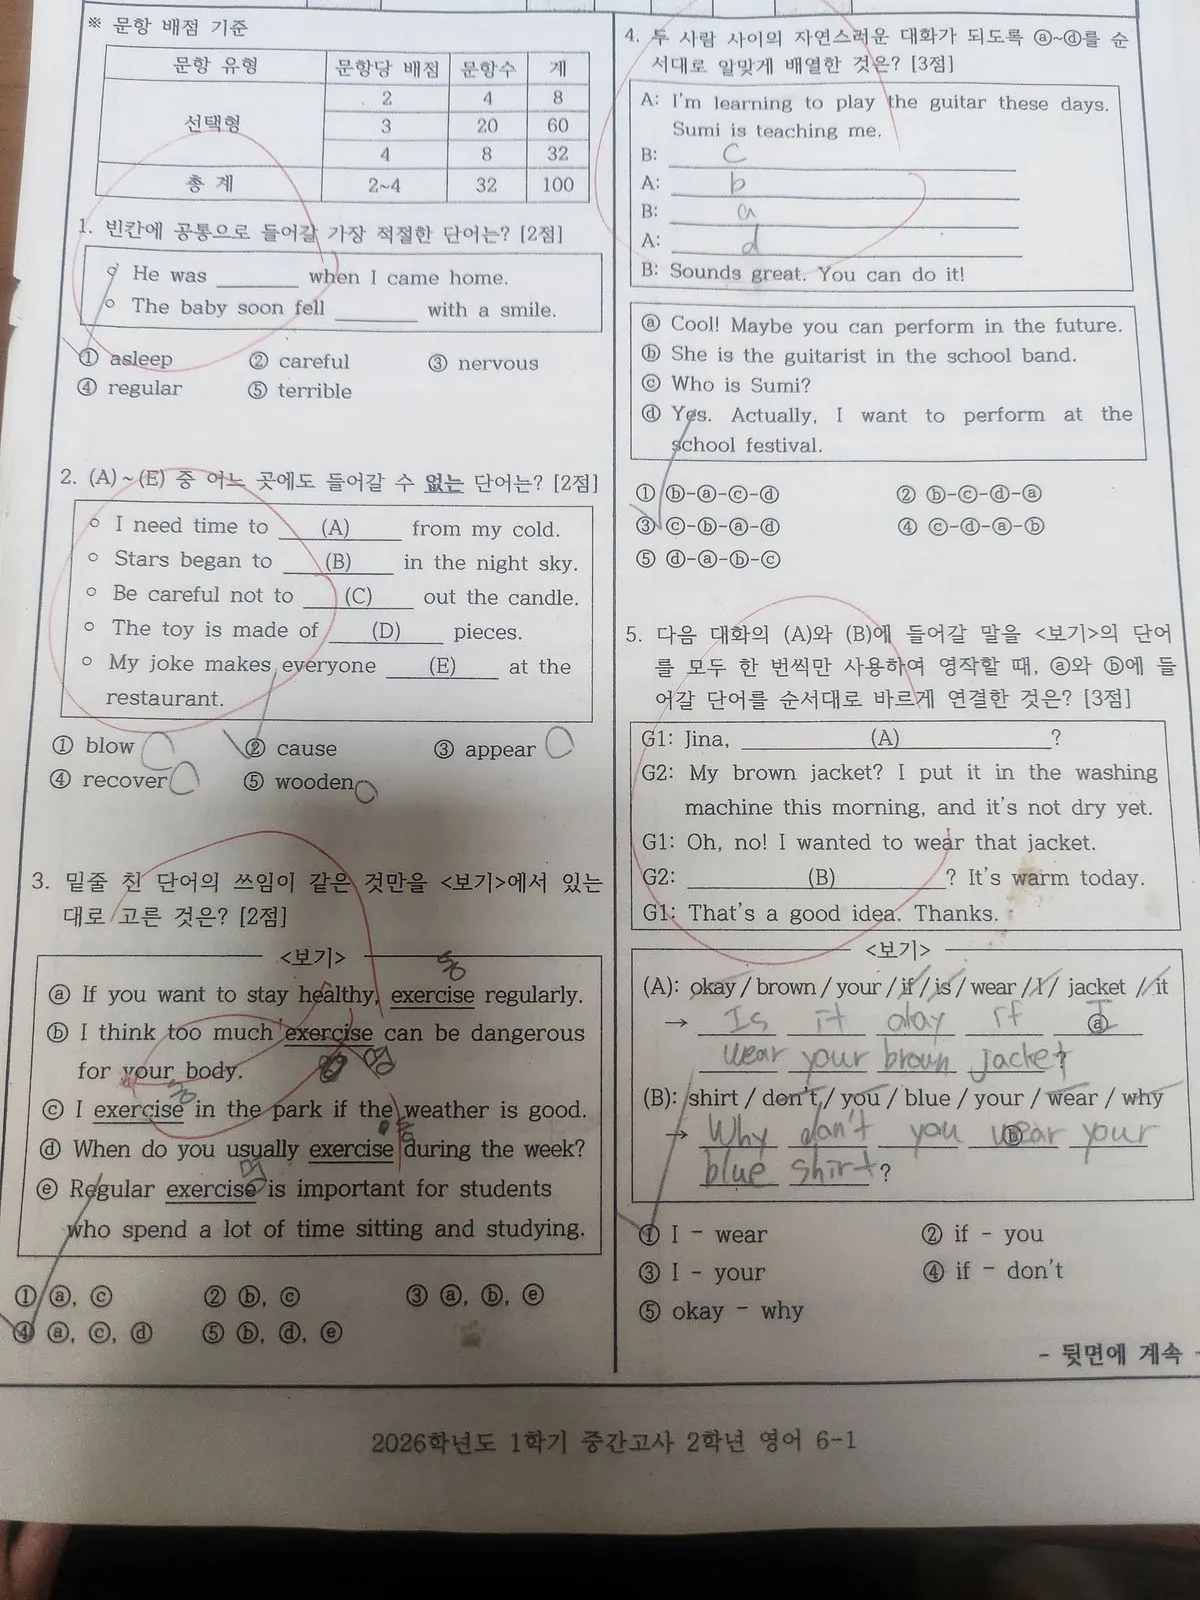 ※ 문항 배점 기준
문항 유형 문항당 배점 문항수 계
선택형 2 4 8
3 20 60
4 8 32
총 계 2~4 32 100
1. 빈칸에 공통으로 들어갈 가장 적절한 단어는? [2점]
∘ He was ________ when I came home.
∘ The baby soon fell ________ with a smile.
① asleep ② careful ③ nervous
④ regular ⑤ terrible
2. (A)~(E) 중 어느 곳에도 들어갈 수 없는 단어는? [2점]
∘ I need time to (A) from my cold.
∘ Stars began to (B) in the night sky.
∘ Be careful not to (C) out the candle.
∘ The toy is made of (D) pieces.
∘ My joke makes everyone (E) at the
restaurant.
① blow ② cause ③ appear
④ recover ⑤ wooden
3. 밑줄 친 단어의 쓰임이 같은 것만을 <보기>에서 있는
대로 고른 것은? [2점]
<보기>
ⓐ If you want to stay healthy, exercise regularly.
동
ⓑ I think too much exercise can be dangerous
for your body.
명
ⓒ I exercise in the park if the weather is good.
동
ⓓ When do you usually exercise during the week?
동
ⓔ Regular exercise is important for students
명
who spend a lot of time sitting and studying.
① ⓐ, ⓒ ② ⓑ, ⓒ ③ ⓐ, ⓑ, ⓔ
④ ⓐ, ⓒ, ⓓ ⑤ ⓑ, ⓓ, ⓔ
4. 두 사람 사이의 자연스러운 대화가 되도록 ⓐ~ⓓ를 순
서대로 알맞게 배열한 것은? [3점]
A: I'm learning to play the guitar these days.
Sumi is teaching me.
B: c
A: b
B: a
A: d
B: Sounds great. You can do it!
ⓐ Cool! Maybe you can perform in the future.
ⓑ She is the guitarist in the school band.
ⓒ Who is Sumi?
ⓓ Yes. Actually, I want to perform at the
school festival.
① ⓑ-ⓐ-ⓒ-ⓓ ② ⓑ-ⓒ-ⓓ-ⓐ
③ ⓒ-ⓑ-ⓐ-ⓓ ④ ⓒ-ⓓ-ⓐ-ⓑ
⑤ ⓓ-ⓐ-ⓑ-ⓒ
5. 다음 대화의 (A)와 (B)에 들어갈 말을 <보기>의 단어
를 모두 한 번씩만 사용하여 영작할 때, ⓐ와 ⓑ에 들
어갈 단어를 순서대로 바르게 연결한 것은? [3점]
G1: Jina, (A) ?
G2: My brown jacket? I put it in the washing
machine this morning, and it's not dry yet.
G1: Oh, no! I wanted to wear that jacket.
G2: (B) ? It's warm today.
G1: That's a good idea. Thanks.
<보기>
(A): okay / brown / your / if / is / wear / I / jacket / it
→ Is it okay if ⓐ I
wear your brown jacket?
(B): shirt / don't / you / blue / your / wear / why
→ Why don't you ⓑ wear your
blue shirt?
① I - wear ② if - you
③ I - your ④ if - don't
⑤ okay - why
- 뒷면에 계속 -
2026학년도 1학기 중간고사 2학년 영어 6-1